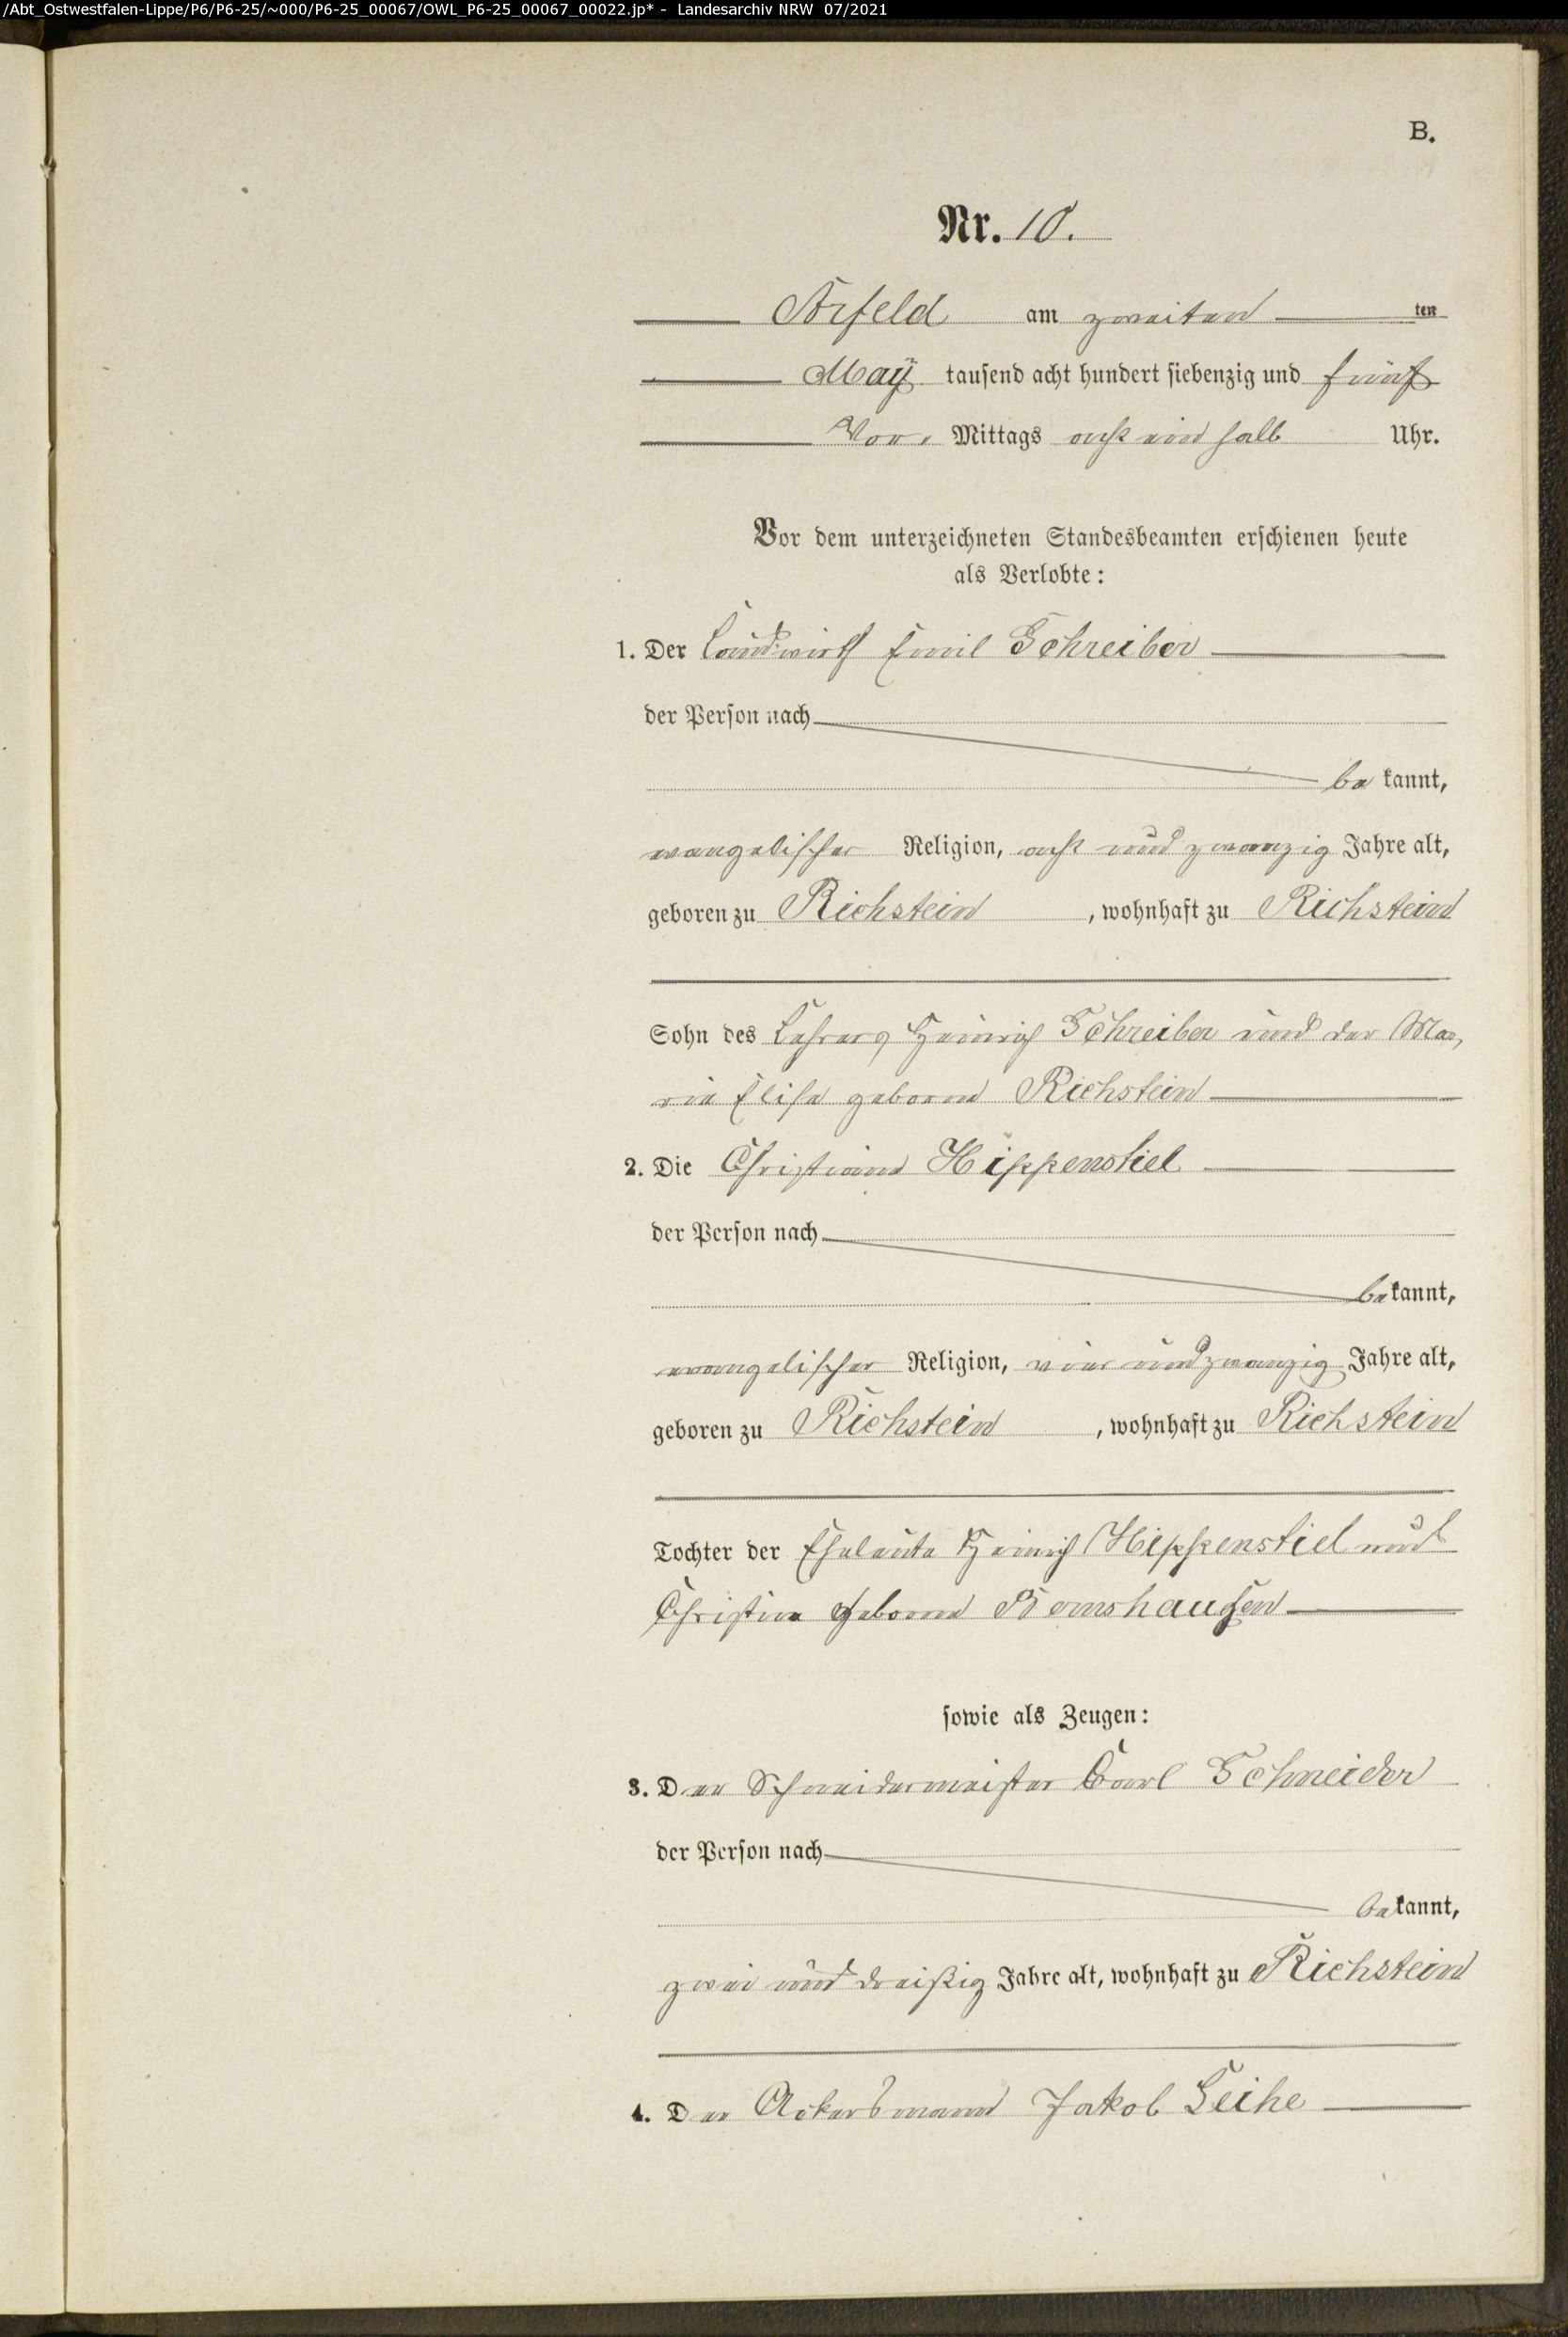 /Abt_Ostwestfalen-Lippe/P6/P6-25/~000/P6-25_00067/OWL_P6-25_00067_00022.jp* - Landesarchiv NRW 07/2021
B.
Nr. 10.
Arfeld am zweiten ten
May tausend acht hundert siebenzig und fünf
Vor Mittags acht ein halb Uhr.
Vor dem unterzeichneten Standesbeamten erschienen heute
als Verlobte:
1. Der Landwirth Emil Schreiber
der Person nach
be kannt,
evangelischer Religion, acht und zwanzig Jahre alt,
geboren zu Richstein, wohnhaft zu Richstein
Sohn des Lehrers Heinrich Schreiber und der Ma,
rie Elise geborne Richstein
2. Die Christiane Hippenstiel
der Person nach
bekannt,
evangelischer Religion, vier und zwanzig Jahre alt,
geboren zu Richstein, wohnhaft zu Richstein
Tochter der Eheleute Heinrich Hippenstiel und
Christine geborne Bernshausen
sowie als Zeugen:
3. Der Schneidermeister Carl Schneider
der Person nach
bekannt,
zwei und dreißig Jahre alt, wohnhaft zu Richstein
4. Der Ackersmann Jakob